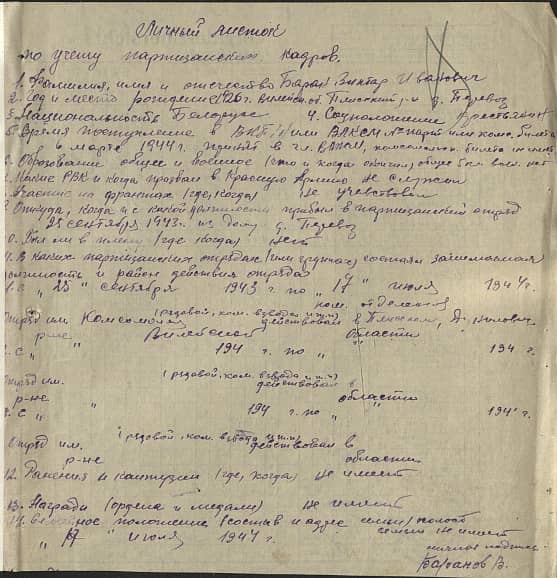 Личный листок
по учету партизанских кадров.
1. Фамилия, имя и отчество Баран Виктар Иванович
2. Год и место рождение 1926 г. Вилейск. об. Плисский р-н д. Перевоз
3. Национальность Белорус 4. Соцположение Крестьянин
5. Время поступление в ВКПб или ВЛКСМ № парт или комс. билета
6 марта 1944 г. принят в чл. ВЛКСМ, комсомольск. билета не имеет
6. Образование общее и военное (что и когда окончил) общее 5 кл воен. нет
7. Какие РВК и когда призван в Красную Армию Не служил
Участие на фронтах (где, когда) Не участвовал
Откуда, когда и с какой должности прибыл в партизанский отряд
25 сентября 1943 г. из дому д. Перевоз
0. Был ли в плену (где когда) нет
В каких партизанских отрядах (или группах) состоял занимаемая
должность и район действия отряда
1. с " 25 " сентября 1943 г. по " 17 " июля 1944 г.
ком. отделения
Отряд им. Комсомола (рядовой, ком. взвода и т.п) действовал в Плисском,
р-не Вилейской области
2. С " " 194 г. по " " 194 г.
Отряд им. (рядовой, ком. взвода и т.п) действовал в
р-не области
3. С " " 194 г. по " " 194 г.
Отряд им. (рядовой, ком. взвода и т.п) действовал в
р-не области
12. Ранения и контузии (где, когда) Не имеет
13. Награды (ордена и медали) Не имеет
14. Семейное положение (состав и адрес семьи) холост
семьи не имеет
" 17 " июля 1944 г.
личная подпись
Баранов В.